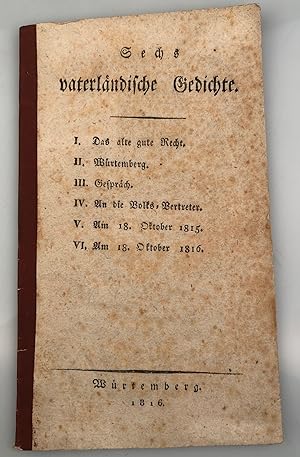 Sechs
vaterländische Gedichte.
I. Das alte gute Recht.
II. Würtemberg.
III. Gespräch.
IV. An die Volks-Vertreter.
V. Am 18. Oktober 1815.
VI. Am 18. Oktober 1816.
Würtemberg.
1816.